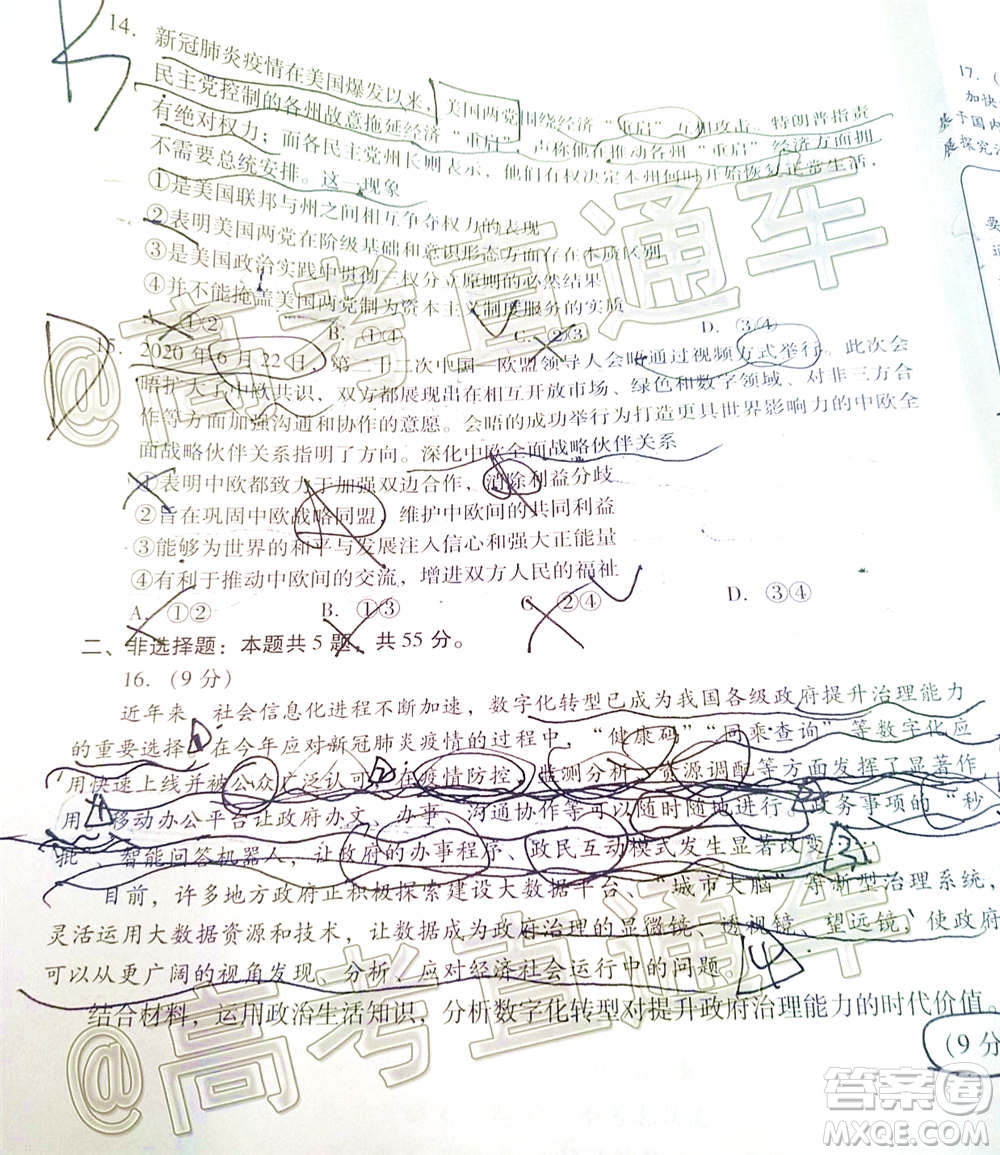 14. 新冠肺炎疫情在美国爆发以来，美国两党围绕经济“重启”互相攻击，特朗普指责
民主党控制的各州故意拖延经济“重启”，声称他在推动各州“重启”经济方面拥
有绝对权力；而各民主党州长则表示，他们有权决定本州何时开始恢复正常生活，
不需要总统安排。这一现象
①是美国联邦与州之间相互争夺权力的表现
②表明美国两党在阶级基础和意识形态方面存在本质区别
③是美国政治实践中贯彻三权分立原则的必然结果
④并不能掩盖美国两党制为资本主义制度服务的实质
A. ①② B. ①④ C. ②③ D. ③④
15. 2020年6月22日，第二十二次中国—欧盟领导人会晤通过视频方式举行。此次会
晤扩大了中欧共识，双方都展现出在相互开放市场、绿色和数字领域、对非三方合
作等方面加强沟通和协作的意愿。会晤的成功举行为打造更具世界影响力的中欧全
面战略伙伴关系指明了方向。深化中欧全面战略伙伴关系
①表明中欧都致力于加强双边合作，消除利益分歧
②旨在巩固中欧战略同盟，维护中欧间的共同利益
③能够为世界的和平与发展注入信心和强大正能量
④有利于推动中欧间的交流，增进双方人民的福祉
A. ①② B. ①③ C. ②④ D. ③④
二、非选择题：本题共5题，共55分。
16.（9分）
近年来，社会信息化进程不断加速，数字化转型已成为我国各级政府提升治理能力
的重要选择。在今年应对新冠肺炎疫情的过程中，“健康码”“同乘查询”等数字化应
用快速上线并被公众广泛认可，在疫情防控、监测分析、资源调配等方面发挥了显著作
用。移动办公平台让政府办文、办事、沟通协作等可以随时随地进行。政务事项的“秒
批”、智能问答机器人，让政府的办事程序、政民互动模式发生显著改变……
目前，许多地方政府正积极探索建设大数据平台、“城市大脑”等新型治理系统，
灵活运用大数据资源和技术，让数据成为政府治理的显微镜、透视镜、望远镜，使政府
可以从更广阔的视角发现、分析、应对经济社会运行中的问题。
结合材料，运用政治生活知识，分析数字化转型对提升政府治理能力的时代价值。
（9分
17.（
加快
基于国内
展探究活
要
@高考直通车
@高考直通车
答案卷
MXQE.COM